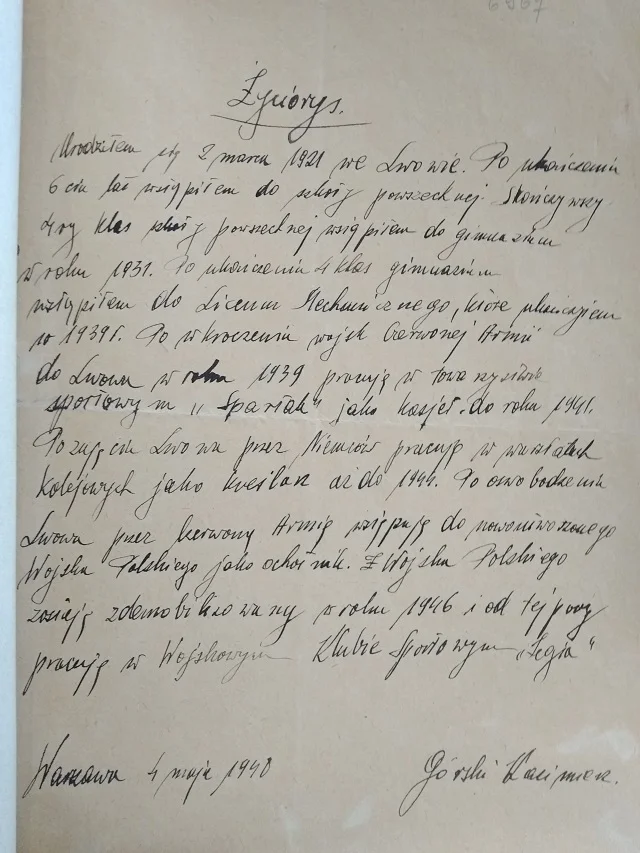 6967
Życiorys.
Urodziłem się 2 marca 1921 we Lwowie. Po ukończeniu
6 ciu lat wstąpiłem do szkoły powszechnej. Skończywszy
4ry klas szkoły powszechnej wstąpiłem do gimnazium
w roku 1931. Po ukończeniu 4 klas gimnazium
wstąpiłem do Liceum Mechanicznego, które ukończyłem
w 1939r. Po wkroczeniu wojsk Czerwonej Armii
do Lwowa w roku 1939 pracuję w towarzystwie
sportowym „Spartak" jako kasjer. do roku 1941.
Po zajęciu Lwowa przez Niemców pracuję w warsztatach
kolejowych jako kreślarz aż do 1944. Po oswobodzeniu
Lwowa przez Czerwoną Armię wstępuję do nowoutworzonego
Wojska Polskiego jako ochotnik. Z Wojska Polskiego
zostaję zdemobilizowany w roku 1946 i od tej pory
pracuję w Wojskowym Klubie Sportowym „Legia"
Warszawa 4 maja 1948 Górski Kazimierz.